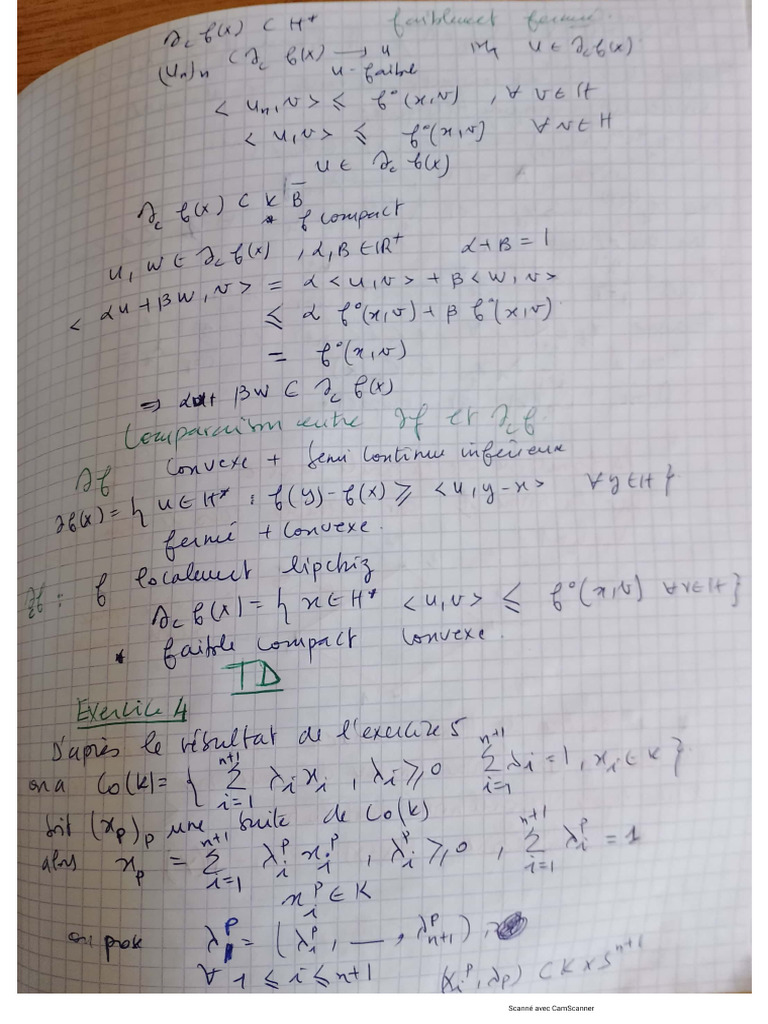 ∂c f(x) ⊂ H* faiblement fermé.
(Un)n ⊂ ∂c f(x) → u mq u ∈ ∂c f(x)
u-faible
< Un, v > ≤ f°(x,v) , ∀ v ∈ H
< u, v > ≤ f°(x,v) ∀ v ∈ H
u ∈ ∂c f(x)
∂c f(x) ⊂ K B̄
* f compact
u, w ∈ ∂c f(x) , α, β ∈ ℝ⁺ α+β = 1
< αu + βw, v > = α < u, v > + β < w, v >
≤ α f°(x,v) + β f°(x,v)
= f°(x,v)
⇒ αu + βw ⊂ ∂c f(x)
Comparaison entre ∂f et ∂c f
∂f convexe + semi continue inférieux
∂f(x) = { u ∈ H* : f(y) - f(x) ≥ < u, y-x > ∀ y ∈ H }
fermé + convexe.
∂cf : f localement lipchiz
∂c f(x) = { x ∈ H* < u, v > ≤ f°(x,v) ∀ v ∈ H }
* faible compact convexe.
TD
Exercice 4
D'après le résultat de l'exercire 5
on a Co(k) = { Σ_{i=1}^{n+1} λi xi , λi ≥ 0 Σ_{i=1}^{n+1} λi = 1, xi ∈ K }
Soit (xp)p une suite de Co(k)
alors xp = Σ_{i=1}^{n+1} λi^p xi^p , λi^p ≥ 0 , Σ_{i=1}^{n+1} λi^p = 1
xi^p ∈ K
on pose λ^p = (λi^p, — , λ_{n+1}^p),
∀ 1 ≤ i ≤ n+1 (xi^p, λp) ⊂ K × S^{n+1}
Scanné avec CamScanner